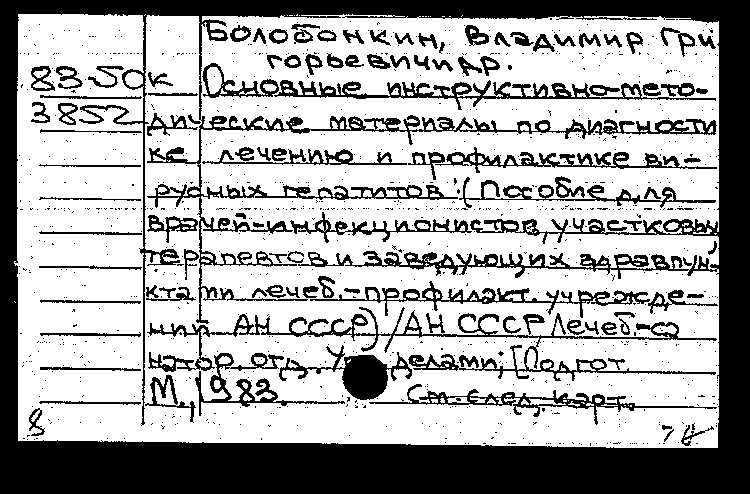 Болобонкин, Владимир Гри
горьевич и др.
83-50к Основные инструктивно-мето-
3852 дические материалы по диагности
ке лечению и профилактике ви-
русных гепатитов : (Пособие для
врачей-инфекционистов, участковых
терапевтов и заведующих здравпун-
ктами лечеб.-профилакт. учрежде-
ний АН СССР) / АН СССР Лечеб-са
натор. отд. Уп делами; [Подгот.
М., 1983. См. след. карт.
8